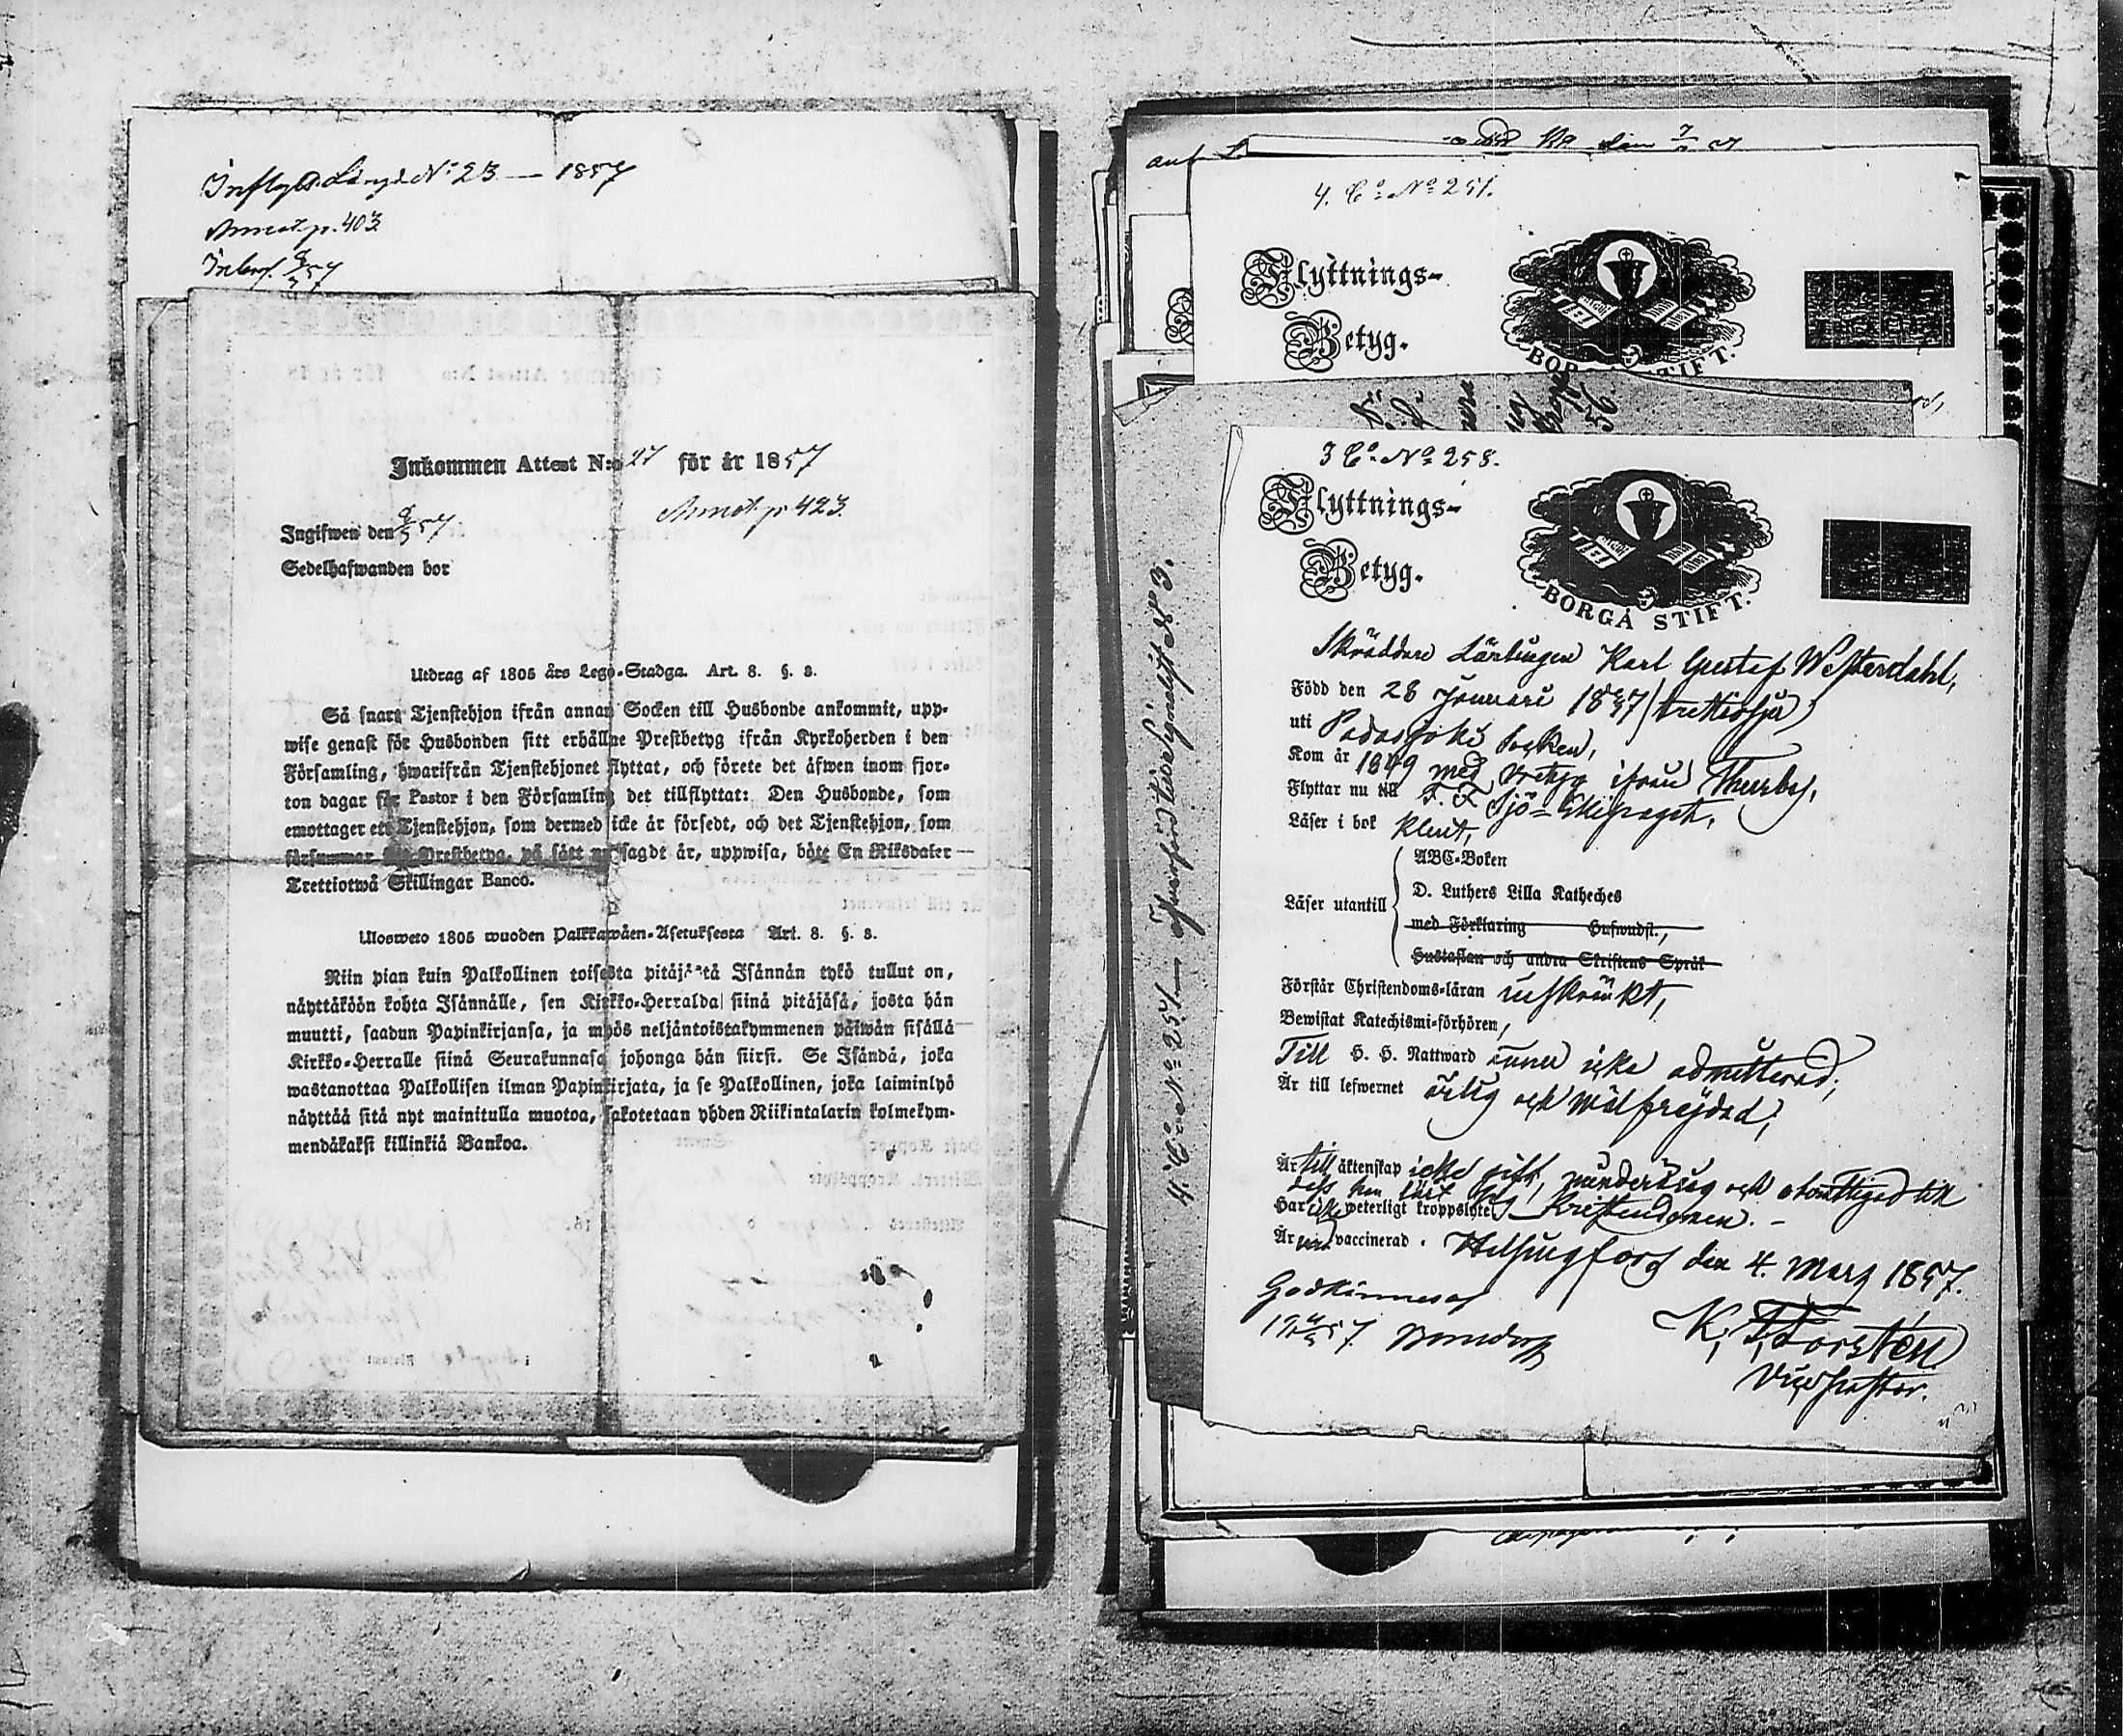 Inflyttn. Längd No 23 — 1857
Annot. p. 403
Inlemn. 57
Inkommen Attest N:o 27 för år 1857
Annot. p. 423
Ingifwen den 57
Sedelhafwanden bor
Utdrag af 1805 års Lego-Stadga. Art. 8. §. 3.
Så snart Tjenstehjon ifrån annan Socken till Husbonde ankommit, upp-
wise genast för Husbonden sitt erhållne Prestbetyg ifrån Kyrkoherden i den
Församling, hwarifrån Tjenstehjonet flyttat, och förete det äfwen inom fjor-
ton dagar för Pastor i den Församling det tillflyttat: Den Husbonde, som
emottager ett Tjenstehjon, som dermed icke är försedt, och det Tjenstehjon, som
försummar sitt Prestbetyg, på sätt nu sagdt är, uppwisa, böte En Riksdaler
Trettiotwå Skillingar Banco.
Ulosweto 1805 wuoden Palkkawäen-Asetuksesta Art. 8. §. 3.
Niin pian kuin Palkollinen toisesta pitäjästä Isännän tykö tullut on,
näyttäköön kohta Isännälle, sen Kirkko-Herralda siinä pitäjäsä, josta hän
muutti, saadun Papinkirjansa, ja myös neljäntoistakymmenen päiwän sisällä
Kirkko-Herralle siinä Seurakunnasa johonga hän siirsi. Se Isändä, joka
wastanottaa Palkollisen ilman Papinkirjata, ja se Palkollinen, joka laiminlyö
näyttää sitä nyt mainitulla muotoa, sakotetaan yhden Riikintalarin kolmekym-
mendäkaksi killinkiä Bankoa.
4. Co No 251.
Flyttnings-
Betyg.
BORGÅ STIFT.
4. Co No 254
3 Co No 258.
Flyttnings-
Betyg.
BORGÅ STIFT.
Skräddare Lärlingen Karl Gustaf Westerdahl,
Född den 28 Januari 1837 (trettiosju)
uti Padasjoki socken,
Kom år 1849 med betyg ifrån Thusby,
Flyttar nu till F. F. Sjö-Ekipaget,
Läser i bok klent,
ABC-Boken
D. Luthers Lilla Katheches
Läser utantill
med Förklaring Hufwudst.,
Hustaflan och andra Skriftens Språk
Förstår Christendoms-läran inskränkt,
Bewistat Katechismi-förhören,
Till H. H. Nattward ännu icke admitterad,
Är till lefwernet ärlig och wälfrejdad,
Är till äktenskap icke gift, minderårig och obehörig till
dess han läst sig
Har icke weterligt kroppslyte, Kristendomen. —
Är vaccinerad. Helsingfors den 4. Mars 1857.
Godkännes
57.
K. F. Forstén
Vice pastor.